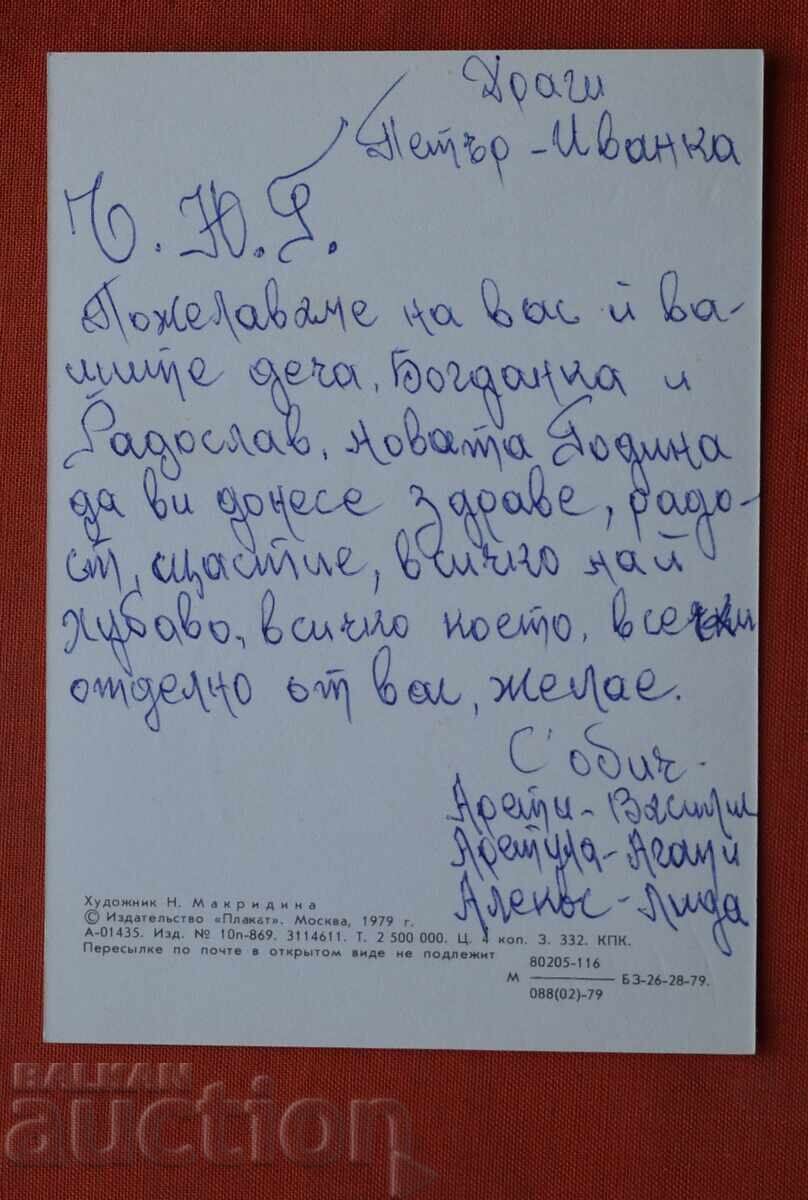 Драги
Петър - Иванка
Ч.Н.Г.
Пожелаваме на вас и ва-
шите деча, Богданка и
Радослав, новата Година
да ви донесе здраве, радо-
ст, щастие, всичко най
хубаво, всичко което, всеки
отделно от вас, желае.
С'обич -
Арети - Васили
Аретула - Агапи
Алекос - Лида
Художник Н. Макридина
© Издательство «Плакат». Москва, 1979 г.
А-01435. Изд. № 10п-869. 3114611. Т. 2 500 000. Ц. 4 коп. З. 332. КПК.
Пересылке по почте в открытом виде не подлежит
80205-116
М ——— БЗ-26-28-79.
088(02)-79
BALKAN
auction